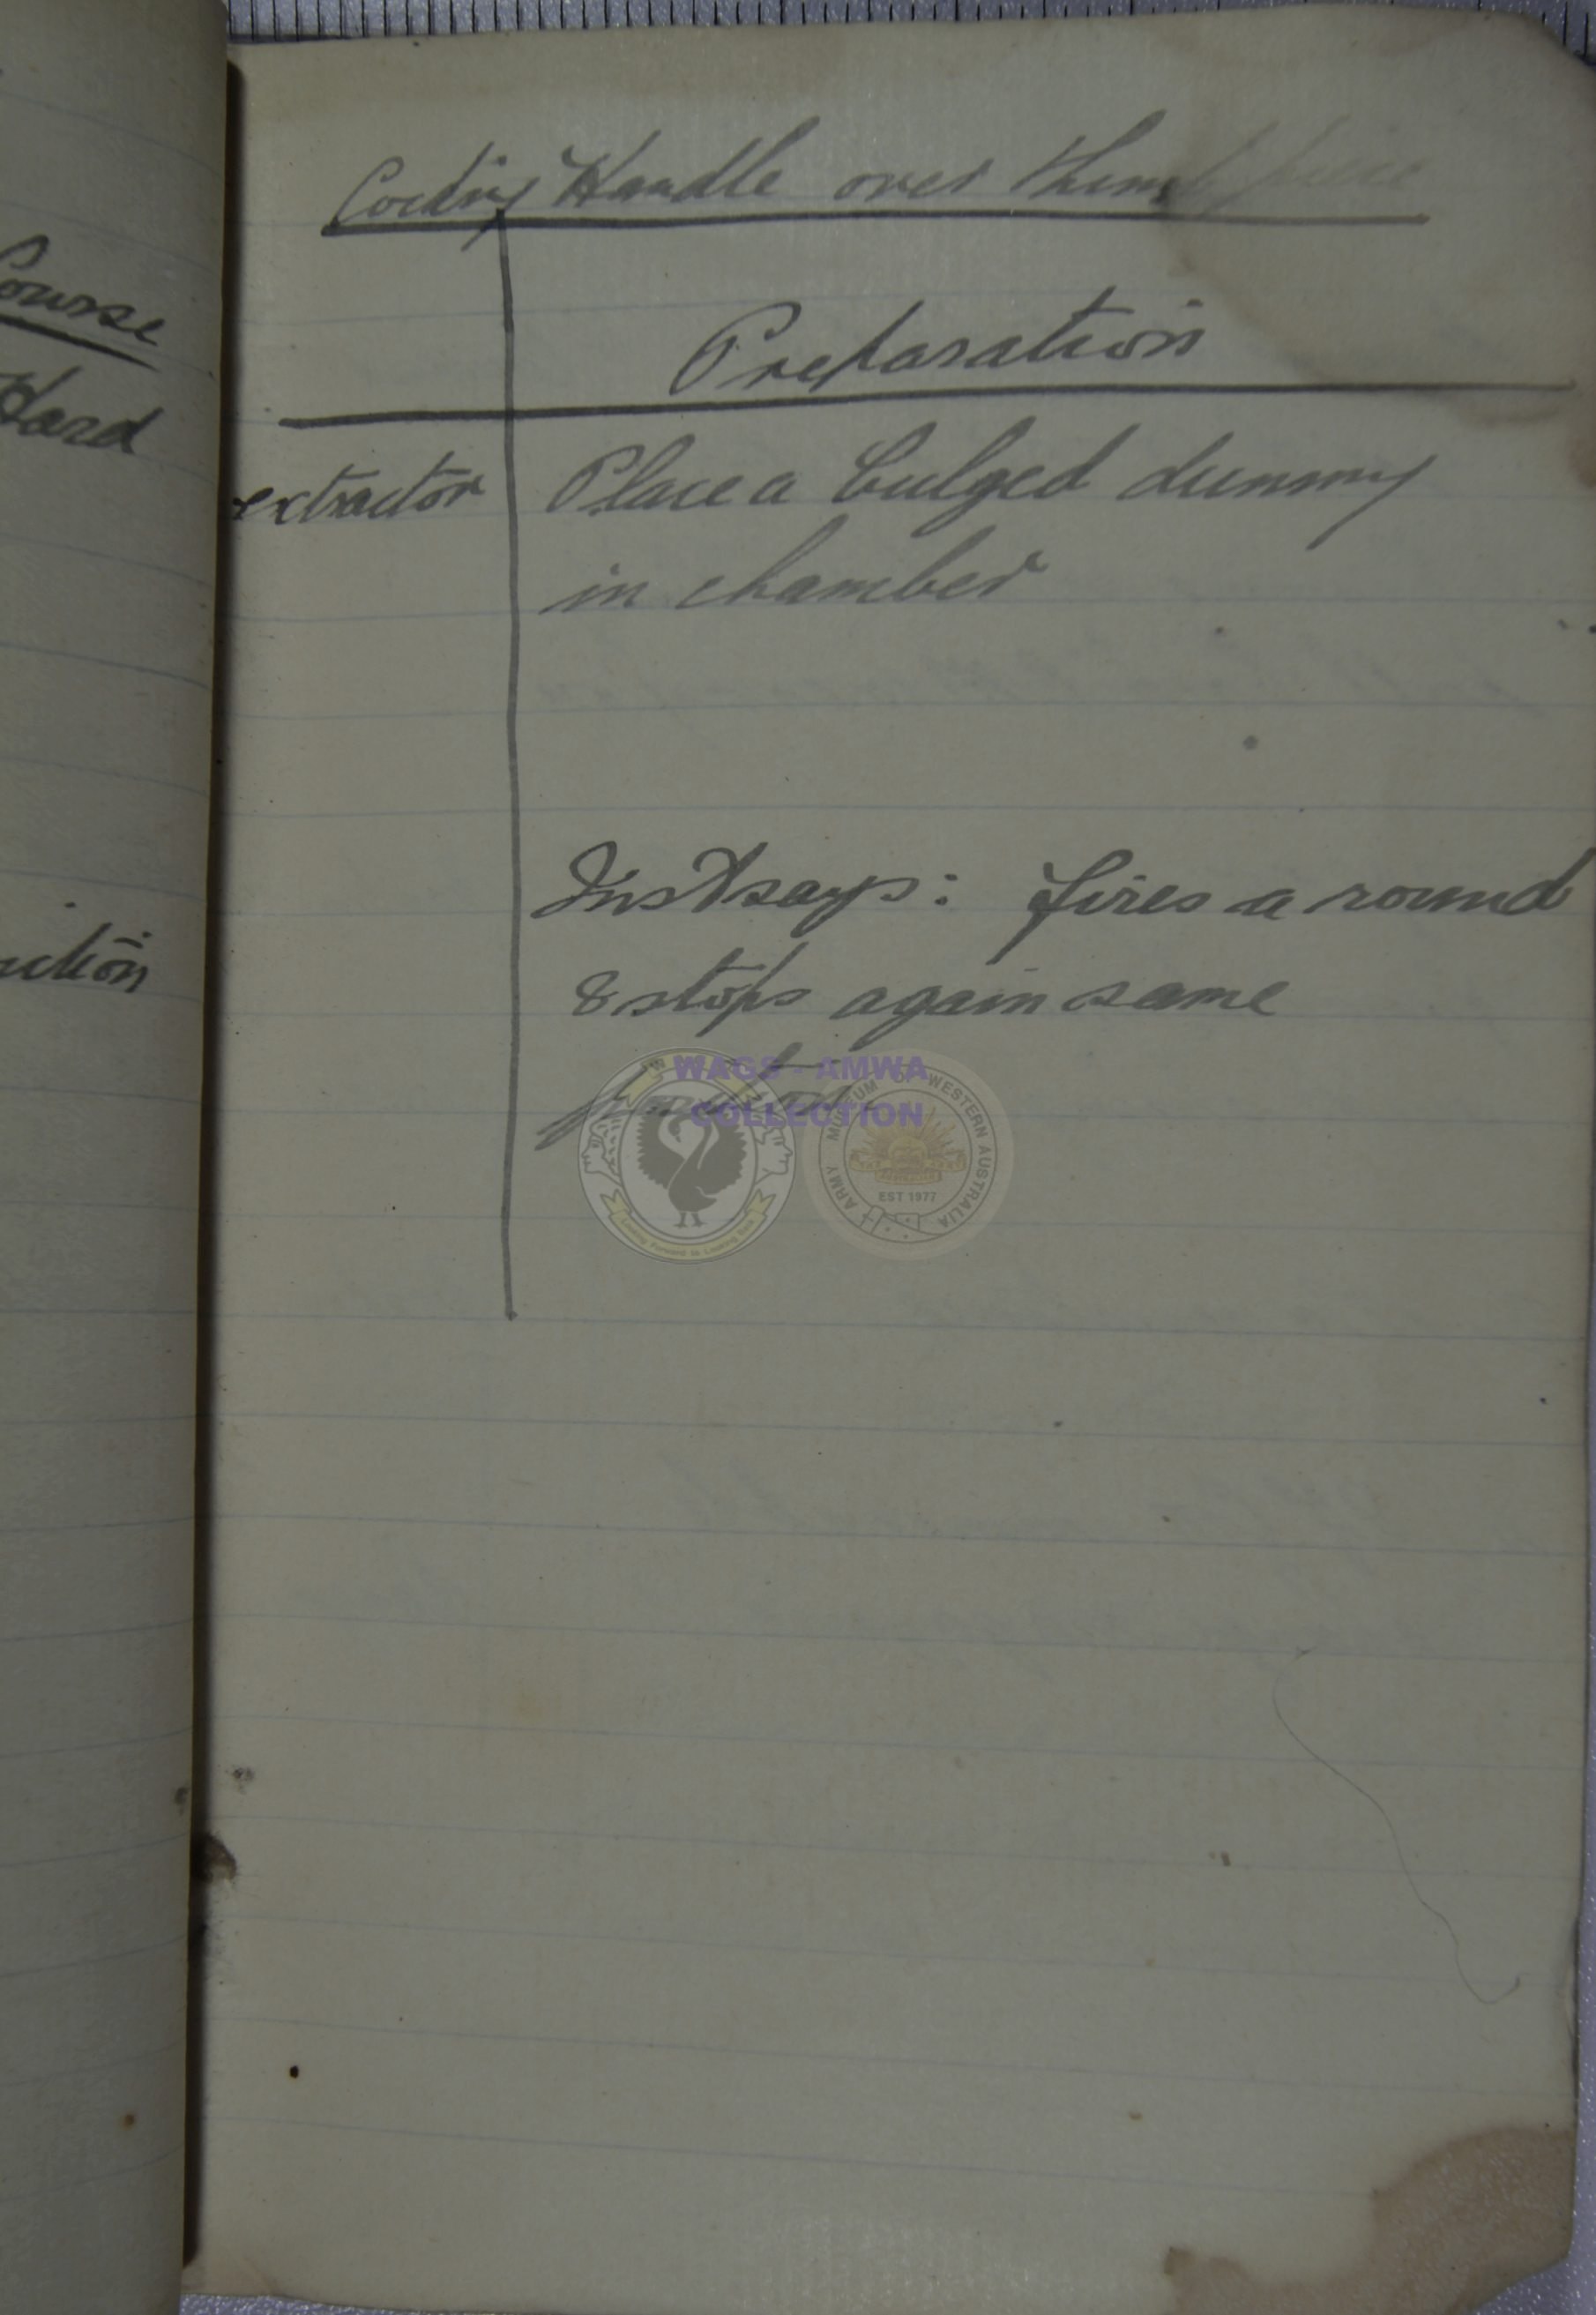 Course
Hard
Cocking Handle over thumb piece
Preparation
extractor Place a bulged dummy
in chamber
Inst says: fires a round
& stops again same
position
WAGS - AMWA
COLLECTION
ARMY MUSEUM OF WESTERN AUSTRALIA
EST 1977
Looking Forward to Looking Back